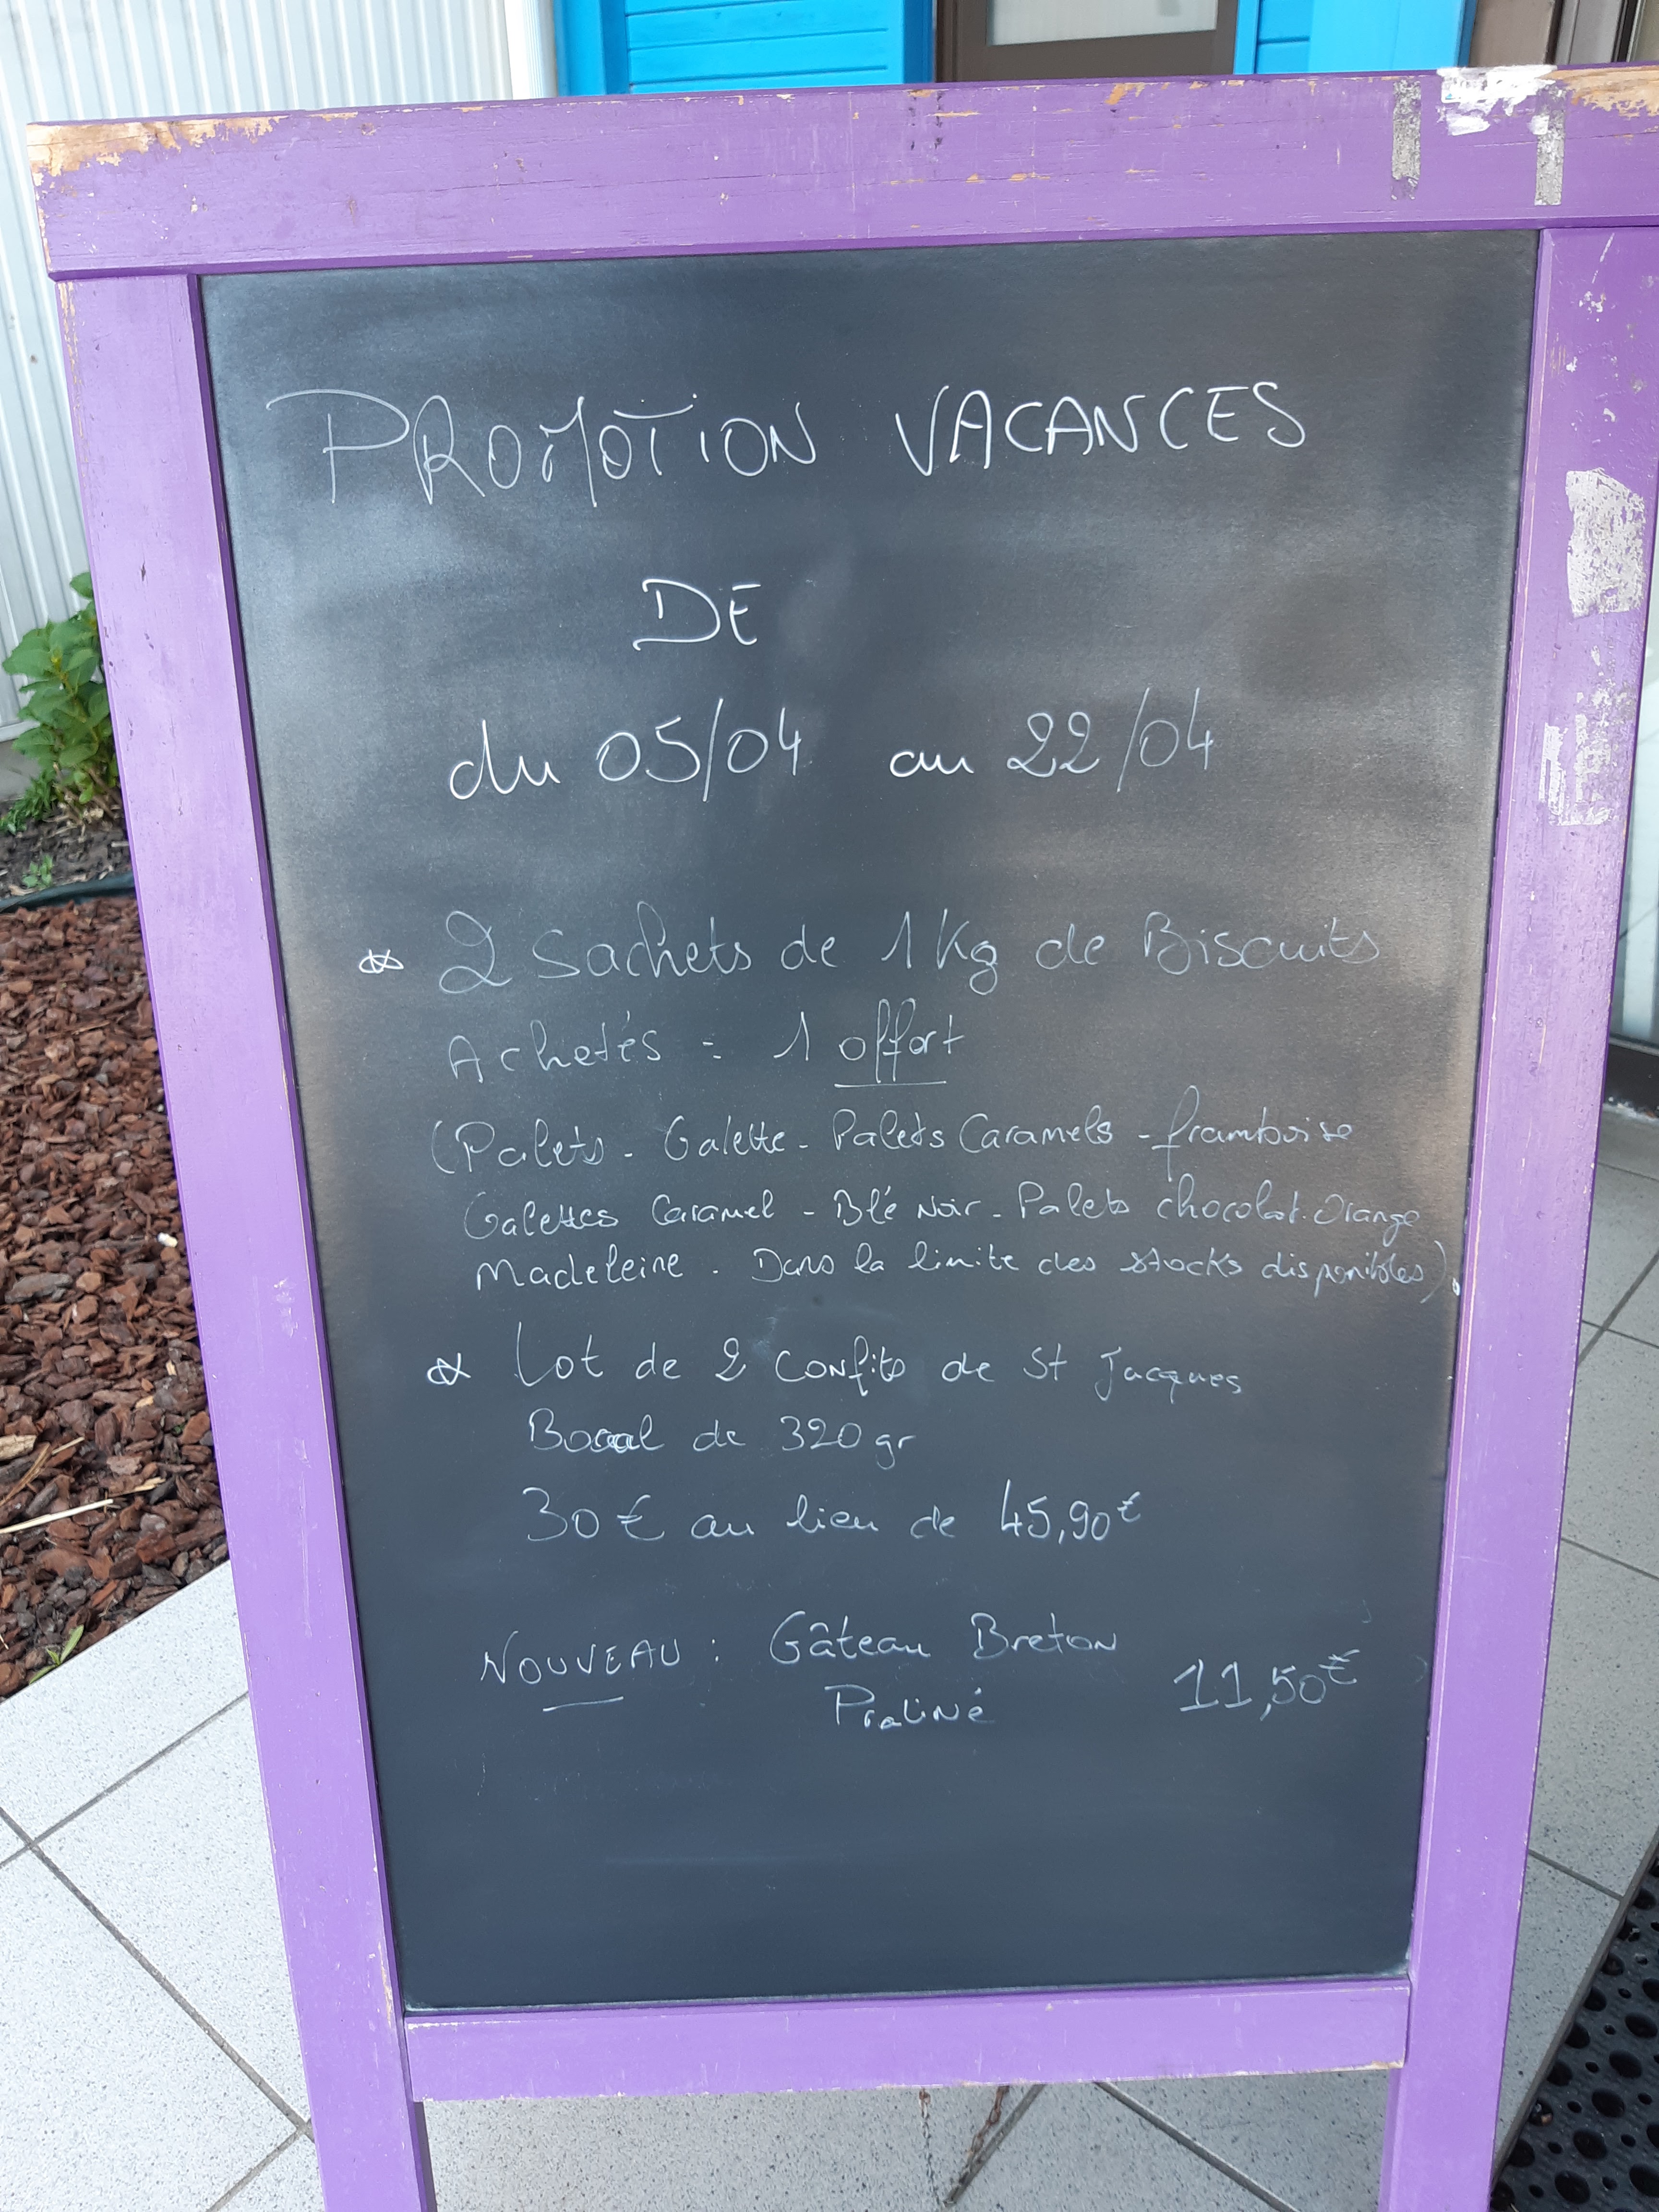 PROMOTION VACANCES
DE
du 05/04 au 22/04
2 Sachets de 1 Kg de Biscuits
Achetés = 1 offert
(Palets - Galette - Palets Caramels - framboise
Galettes Caramel - Blé Noir - Palets chocolat.Orange
Madeleine . Dans la limite des stocks disponibles).
Lot de 2 Confits de St Jacques
Bocal de 320 gr
30 € au lieu de 45,90 €
NOUVEAU : Gâteau Breton
Praliné 11,50 €